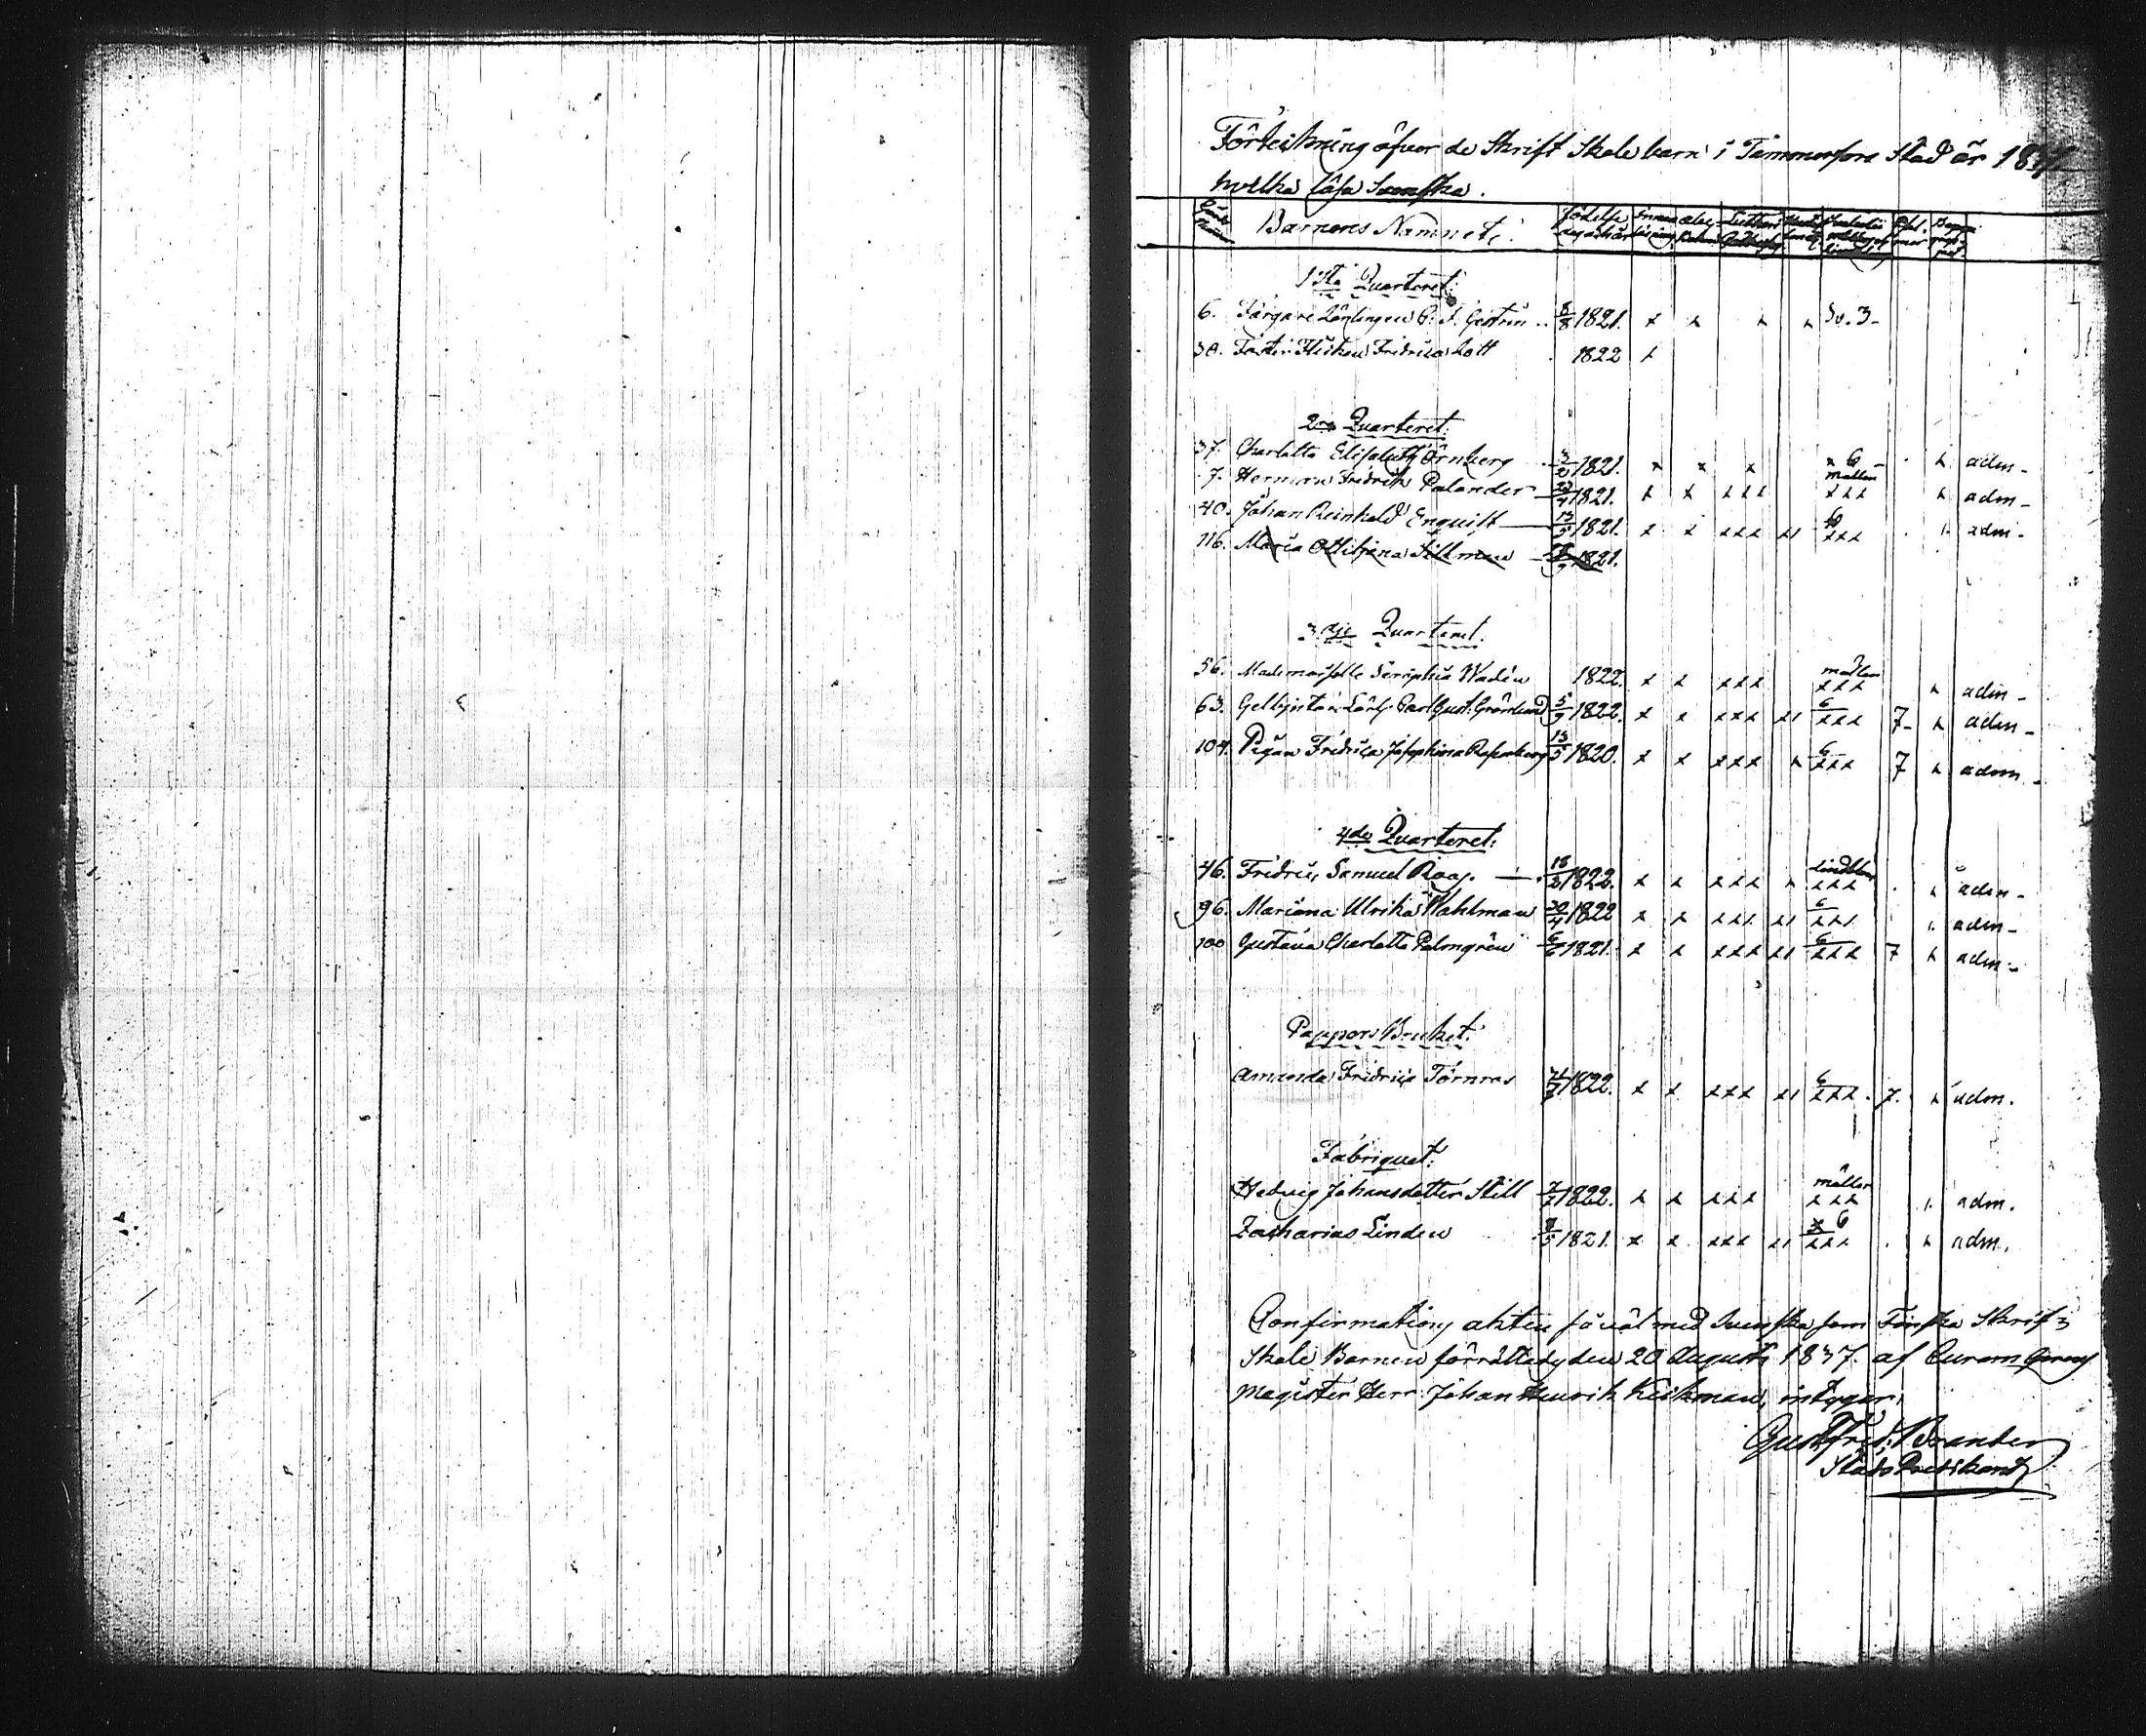 Förteckning öfver de Skrift Skole barn i Tammerfors Stad år 1837
hvilka läsa Svenska.
Barnens Namn etc. Födelse dag och år Innan läsning
1sta Quarteret:
6. Färgare Lärlingen G. F. 8/8 1821. x x x x Sv. 3-
30. Fridrica Lott 1822 x
2dra Quarteret:
37. Charlotta Elisabeth Örnberg 1821. x x x x 6 - x adm-
7. Herman Fridrik Palander 1821. x x xxx möller xxx x adm-
40. Johan Reinhold Enqvist 1821. x x xxx x1 6 xxx adm-
116. Maria Ottiliana Sillman 1821.
3dje Quarteret.
56. Mademoiselle Seraphia Wadén 1822. x x xxx möller xxx x adm-
63. Carl Gust. Grönlund 5/9 1822. x x xxx x1 6 xxx 7- x adm-
104. Pigan Fridrica Josephina Rosenberg 13/5 1820. x x xxx x 6 xxx 7 x adm-
4de Quarteret:
46. Fridric Samuel Roos. 18/3 1822. x x xxx x Lindblom xxx x adm-
96. Mariana Ulrika Wahlman 30/4 1822 x x xxx x1 6 xxx adm-
100 Gustava Charlotta Palmgrén 6/6 1821. x x xxx x1 6 xxx 7 x adm-
Pappers Bruket:
Amanda Fridrica Törnros 1822. x x xxx x1 6 xxx. 7. x adm.
Fabriquet:
Hedvig Johansdotter Still 7/7 1822. x x xxx möller xxx adm.
Zacharias Lindén 1821. x x xxx x1 x 6 xxx x adm.
Confirmations akten såväl med Svenska som Finska Skrift-
Skole Barnen förrättades den 20 Augusti 1837. af
Magister Herr Johan Henrik Keckman, intygar,
Gust. Fred. Brander
Stads Predikant